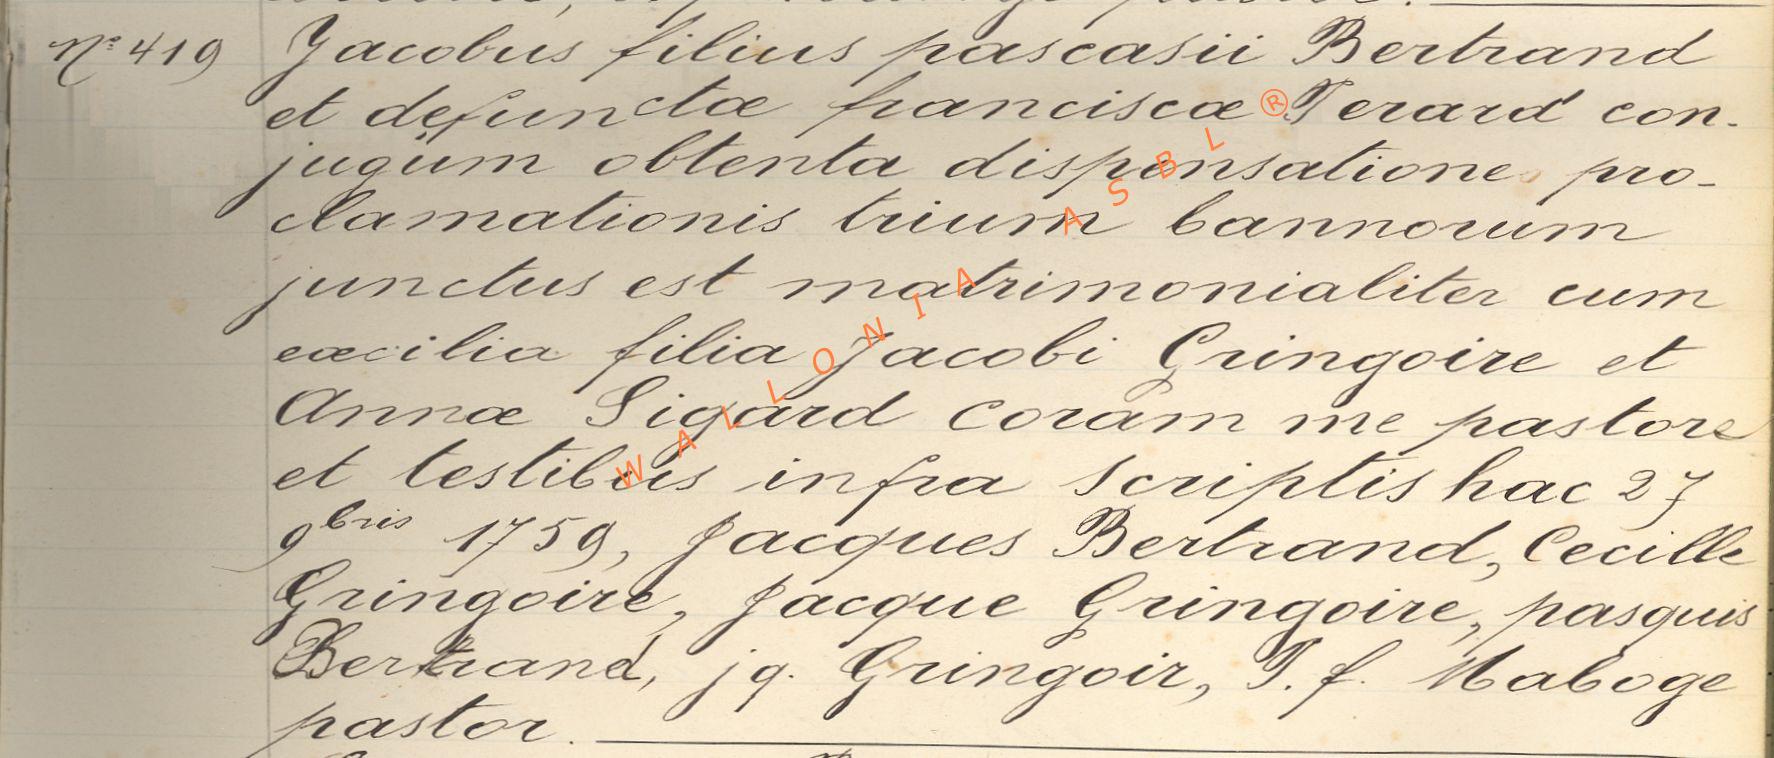 Nº 419 Jacobus filius pascasii Bertrand
et defunctæ franciscæ Terard con-
jugum obtenta dispensatione pro-
clamationis trium bannorum
junctus est matrimonialiter cum
cæcilia filia Jacobi Gringoire et
Annæ Sigard coram me pastore
et testibus infra scriptis hac 27
9bris 1759, Jacques Bertrand, Cecille
Gringoire, Jacque Gringoire, pasquis
Bertrand, jq. Gringoir, T. f. Maboge
pastor.
WALLONIA ASBL ®